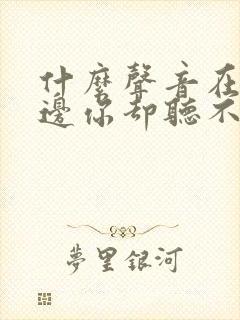 什麼聲音在
邊你却聽不
夢里銀河